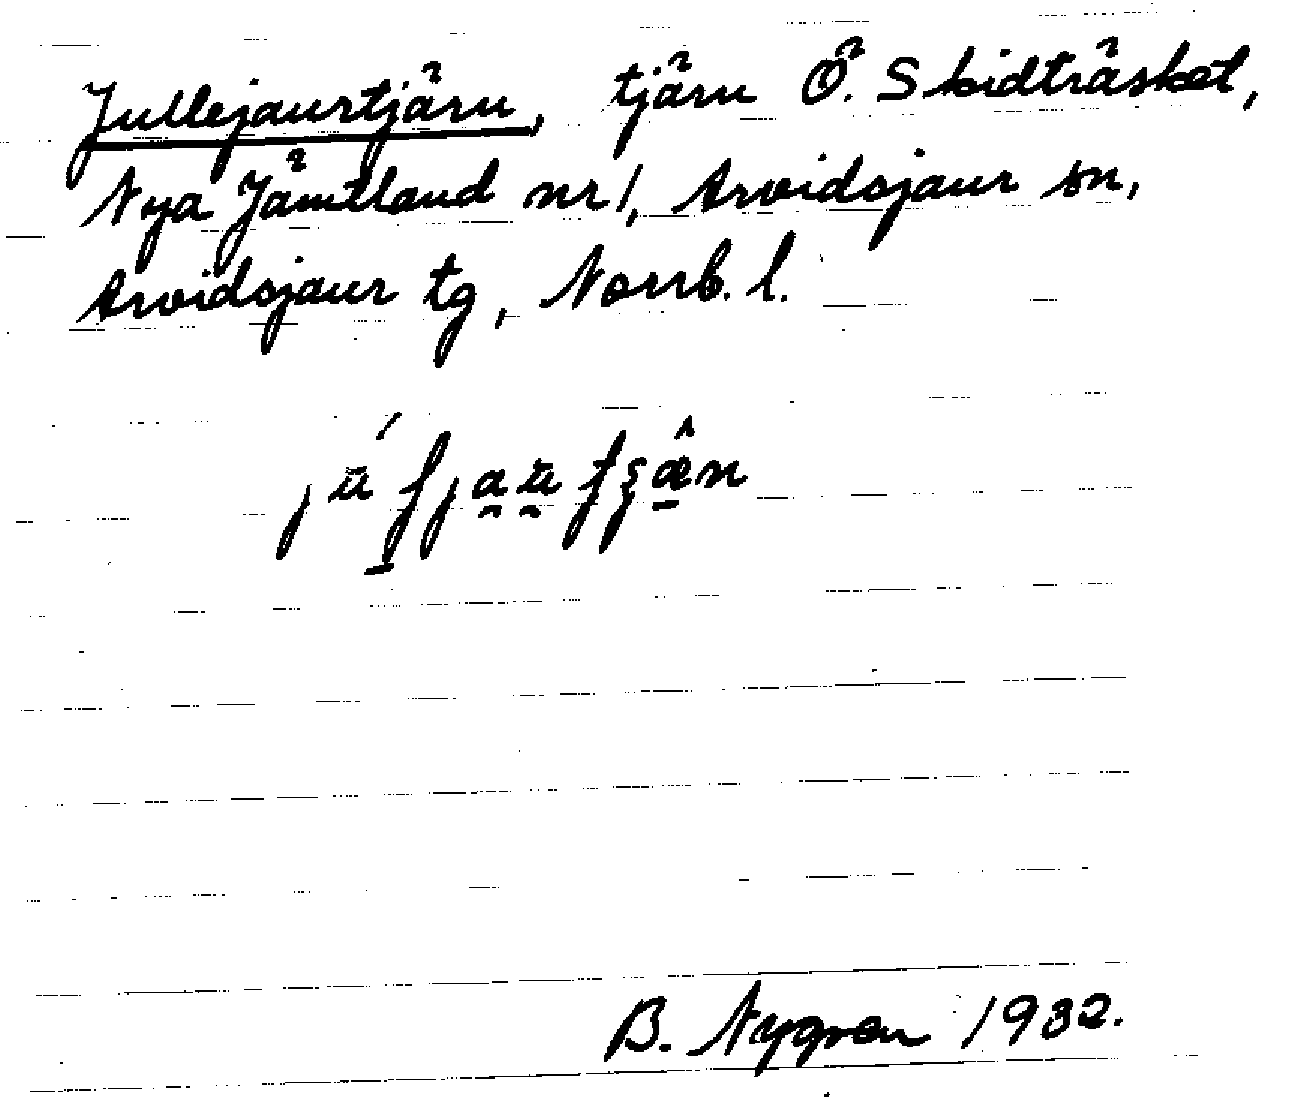 Jullejaurtjärn, tjärn Ö. Skidträsket,
Nya Jämtland nr 1, Arvidsjaur sn,
Arvidsjaur tg, Norrb. l.
B. Nygren 1932.